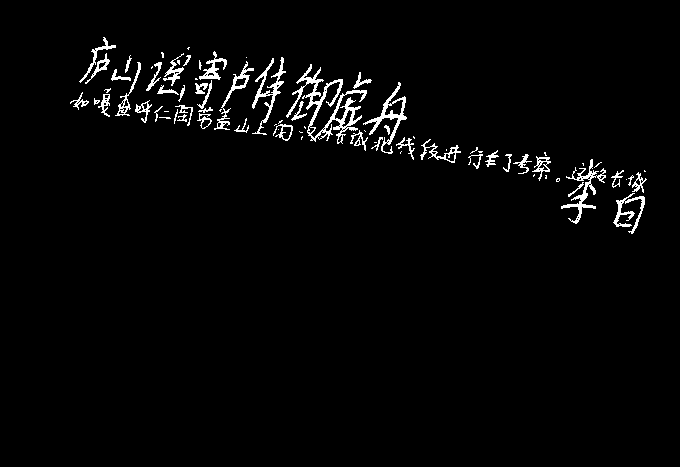 庐山谣寄卢侍御虚舟
和嘎查呼仁陶劳盖山上的汉外长城北线段进行了考察。这段长城
李白